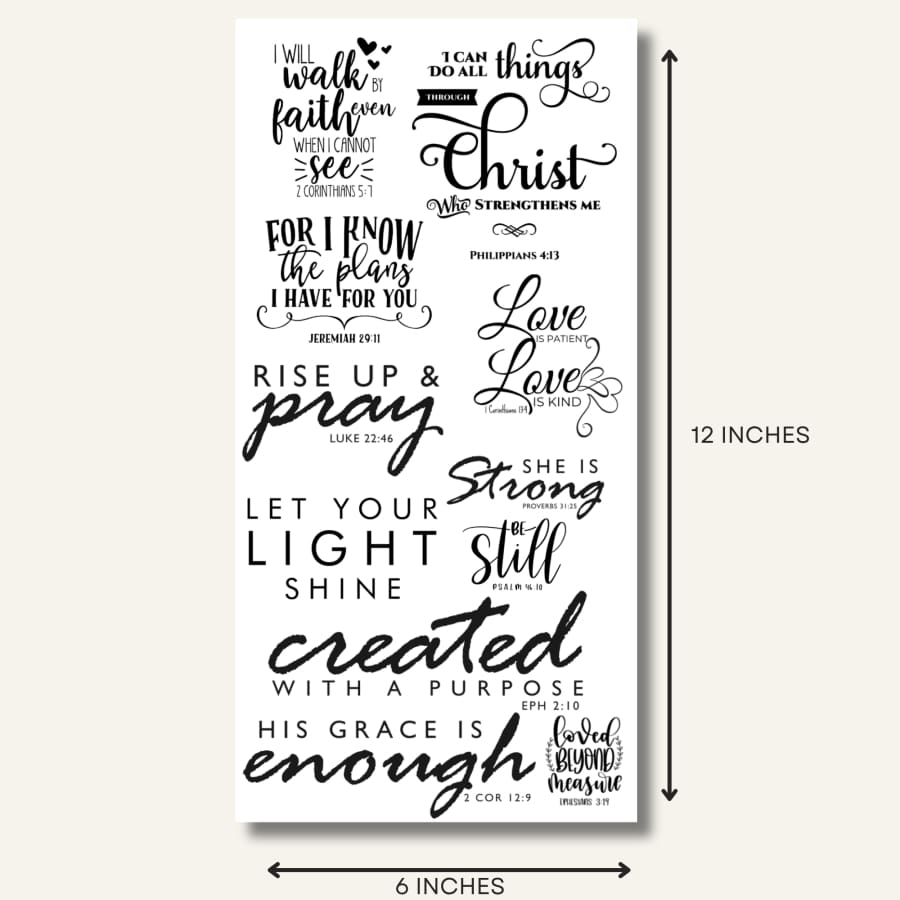 I WILL
walk BY
faith even
WHEN I CANNOT
see
2 CORINTHIANS 5:7
I CAN
DO ALL things
THROUGH
Christ
Who STRENGTHENS ME
PHILIPPIANS 4:13
FOR I KNOW
the plans
I HAVE FOR YOU
JEREMIAH 29:11
Love
IS PATIENT
Love
IS KIND
1 Corinthians 13:4
RISE UP &
pray
LUKE 22:46
SHE IS
Strong
PROVERBS 31:25
LET YOUR
LIGHT
SHINE
BE
still
PSALM 46:10
created
WITH A PURPOSE
EPH 2:10
HIS GRACE IS
enough
2 COR 12:9
loved
BEYOND
measure
EPHESIANS 3:19
12 INCHES
6 INCHES